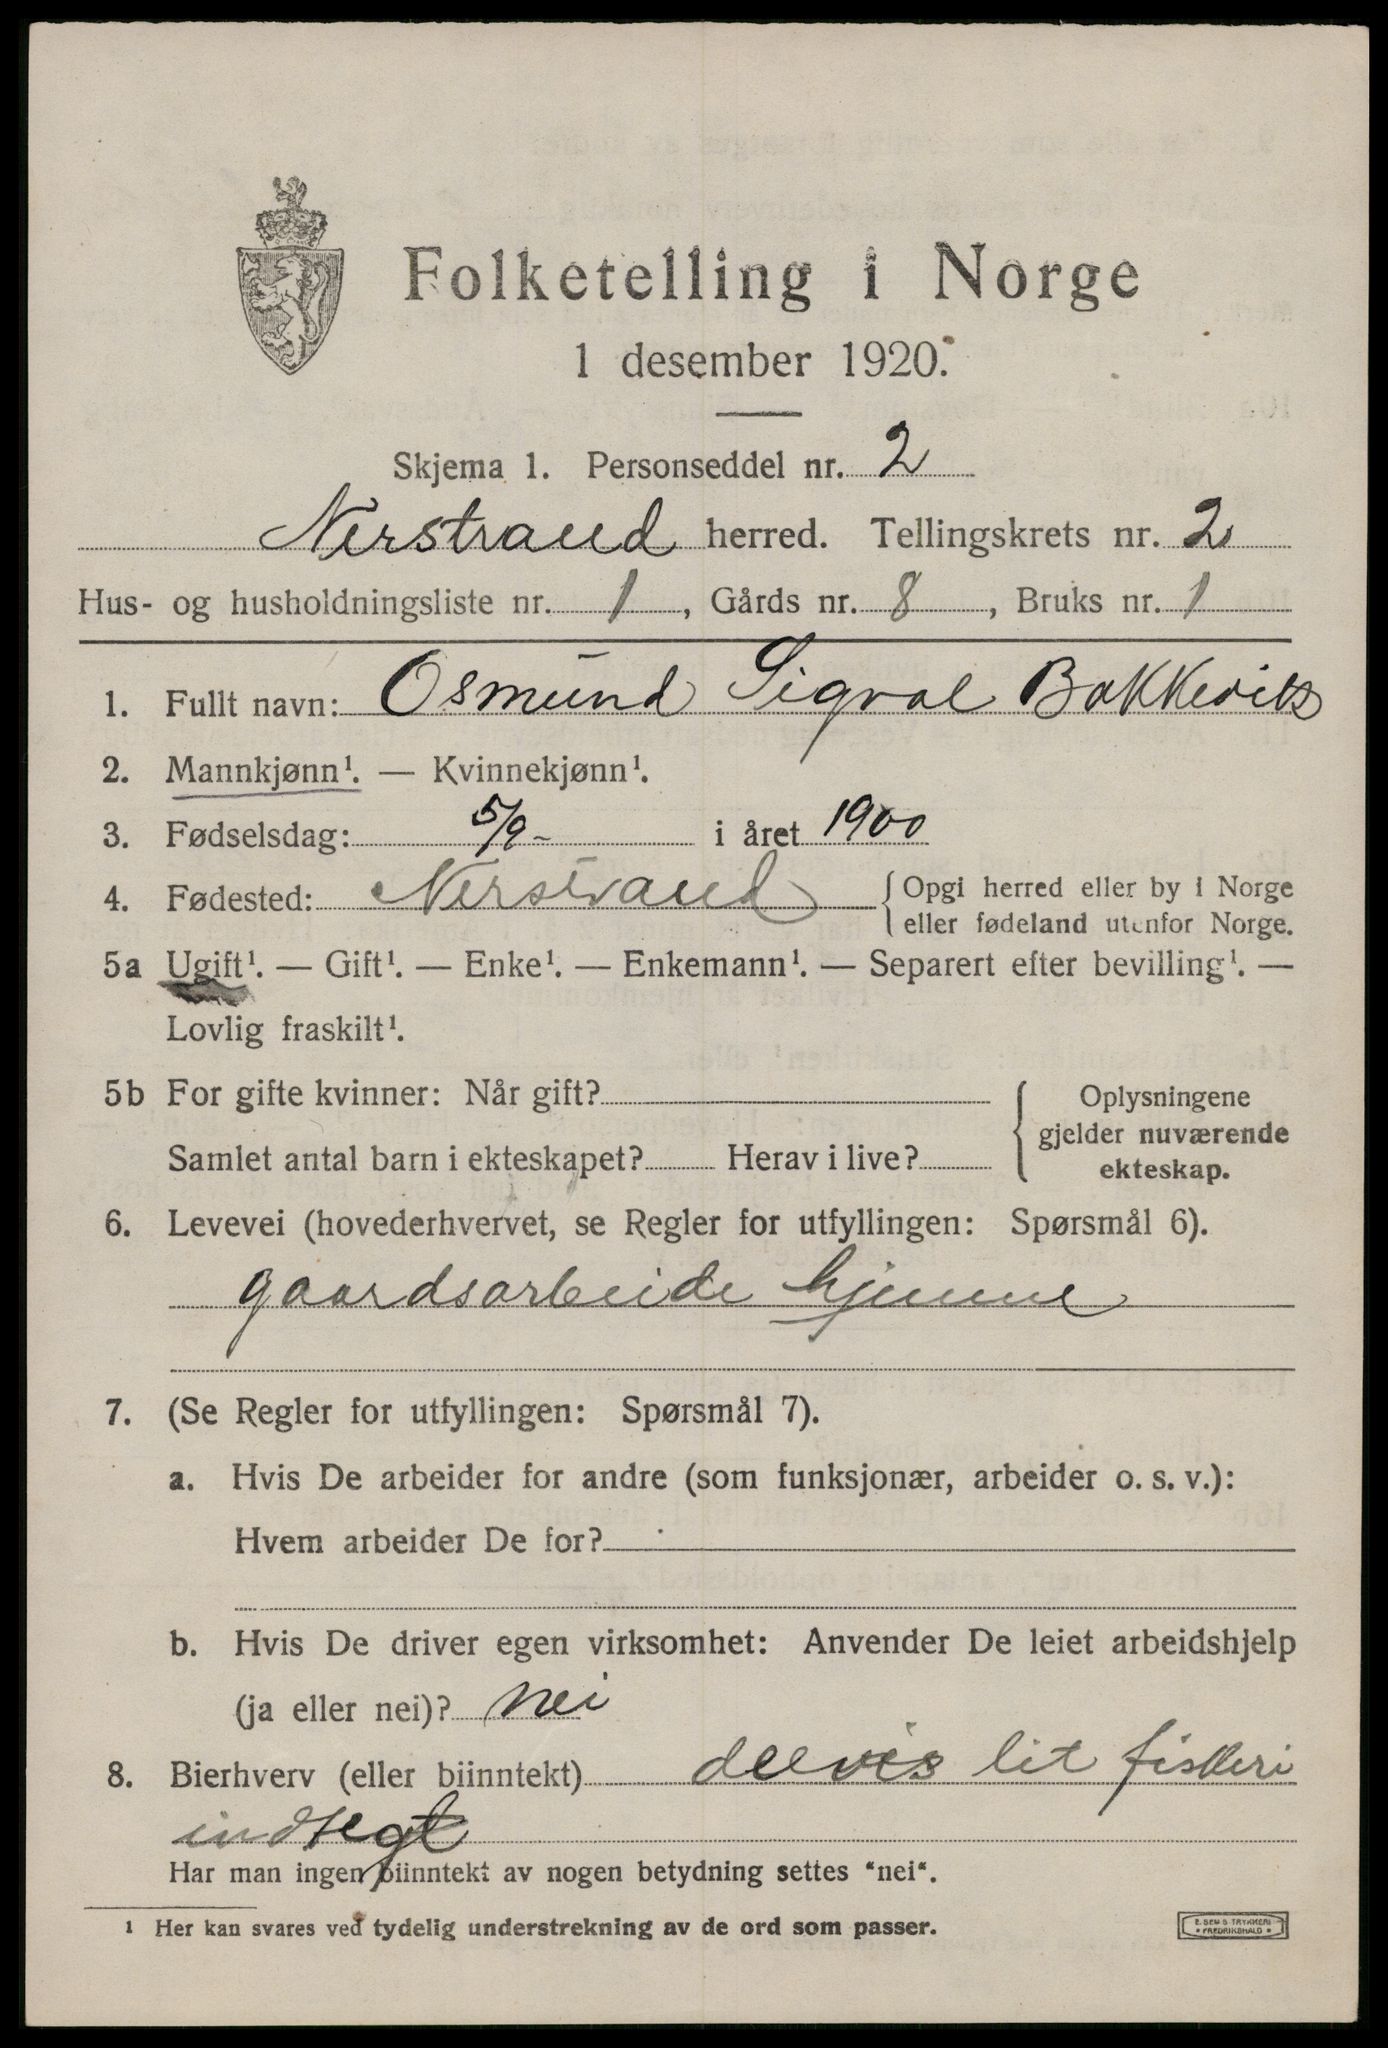 Folketelling i Norge
1 desember 1920.
Skjema 1. Personseddel nr. 2
Nerstrand herred. Tellingskrets nr. 2
Hus- og husholdningsliste nr. 1, Gårds nr. 8, Bruks nr. 1
1. Fullt navn: Osmund Sigval Bakkevik
2. Mannkjønn¹. — Kvinnekjønn¹.
3. Fødselsdag: 5/9- i året 1900
4. Fødested: Nerstrand { Opgi herred eller by i Norge
eller fødeland utenfor Norge.
5a Ugift¹. — Gift¹. — Enke¹. — Enkemann¹. — Separert efter bevilling¹. —
Lovlig fraskilt¹.
5b For gifte kvinner: Når gift? { Oplysningene
gjelder nuværende
Samlet antal barn i ekteskapet? Herav i live? ekteskap.
6. Levevei (hovederhvervet, se Regler for utfyllingen: Spørsmål 6).
gaardsarbeide hjemme
7. (Se Regler for utfyllingen: Spørsmål 7).
a. Hvis De arbeider for andre (som funksjonær, arbeider o. s. v.):
Hvem arbeider De for?
b. Hvis De driver egen virksomhet: Anvender De leiet arbeidshjelp
(ja eller nei)? nei
8. Bierhverv (eller biinntekt) delvis lit fiskeri
indtegt
Har man ingen biinntekt av nogen betydning settes "nei".
¹ Her kan svares ved tydelig understrekning av de ord som passer.
E. SEM S TRYKKERI
* FREDRIKSHALD *